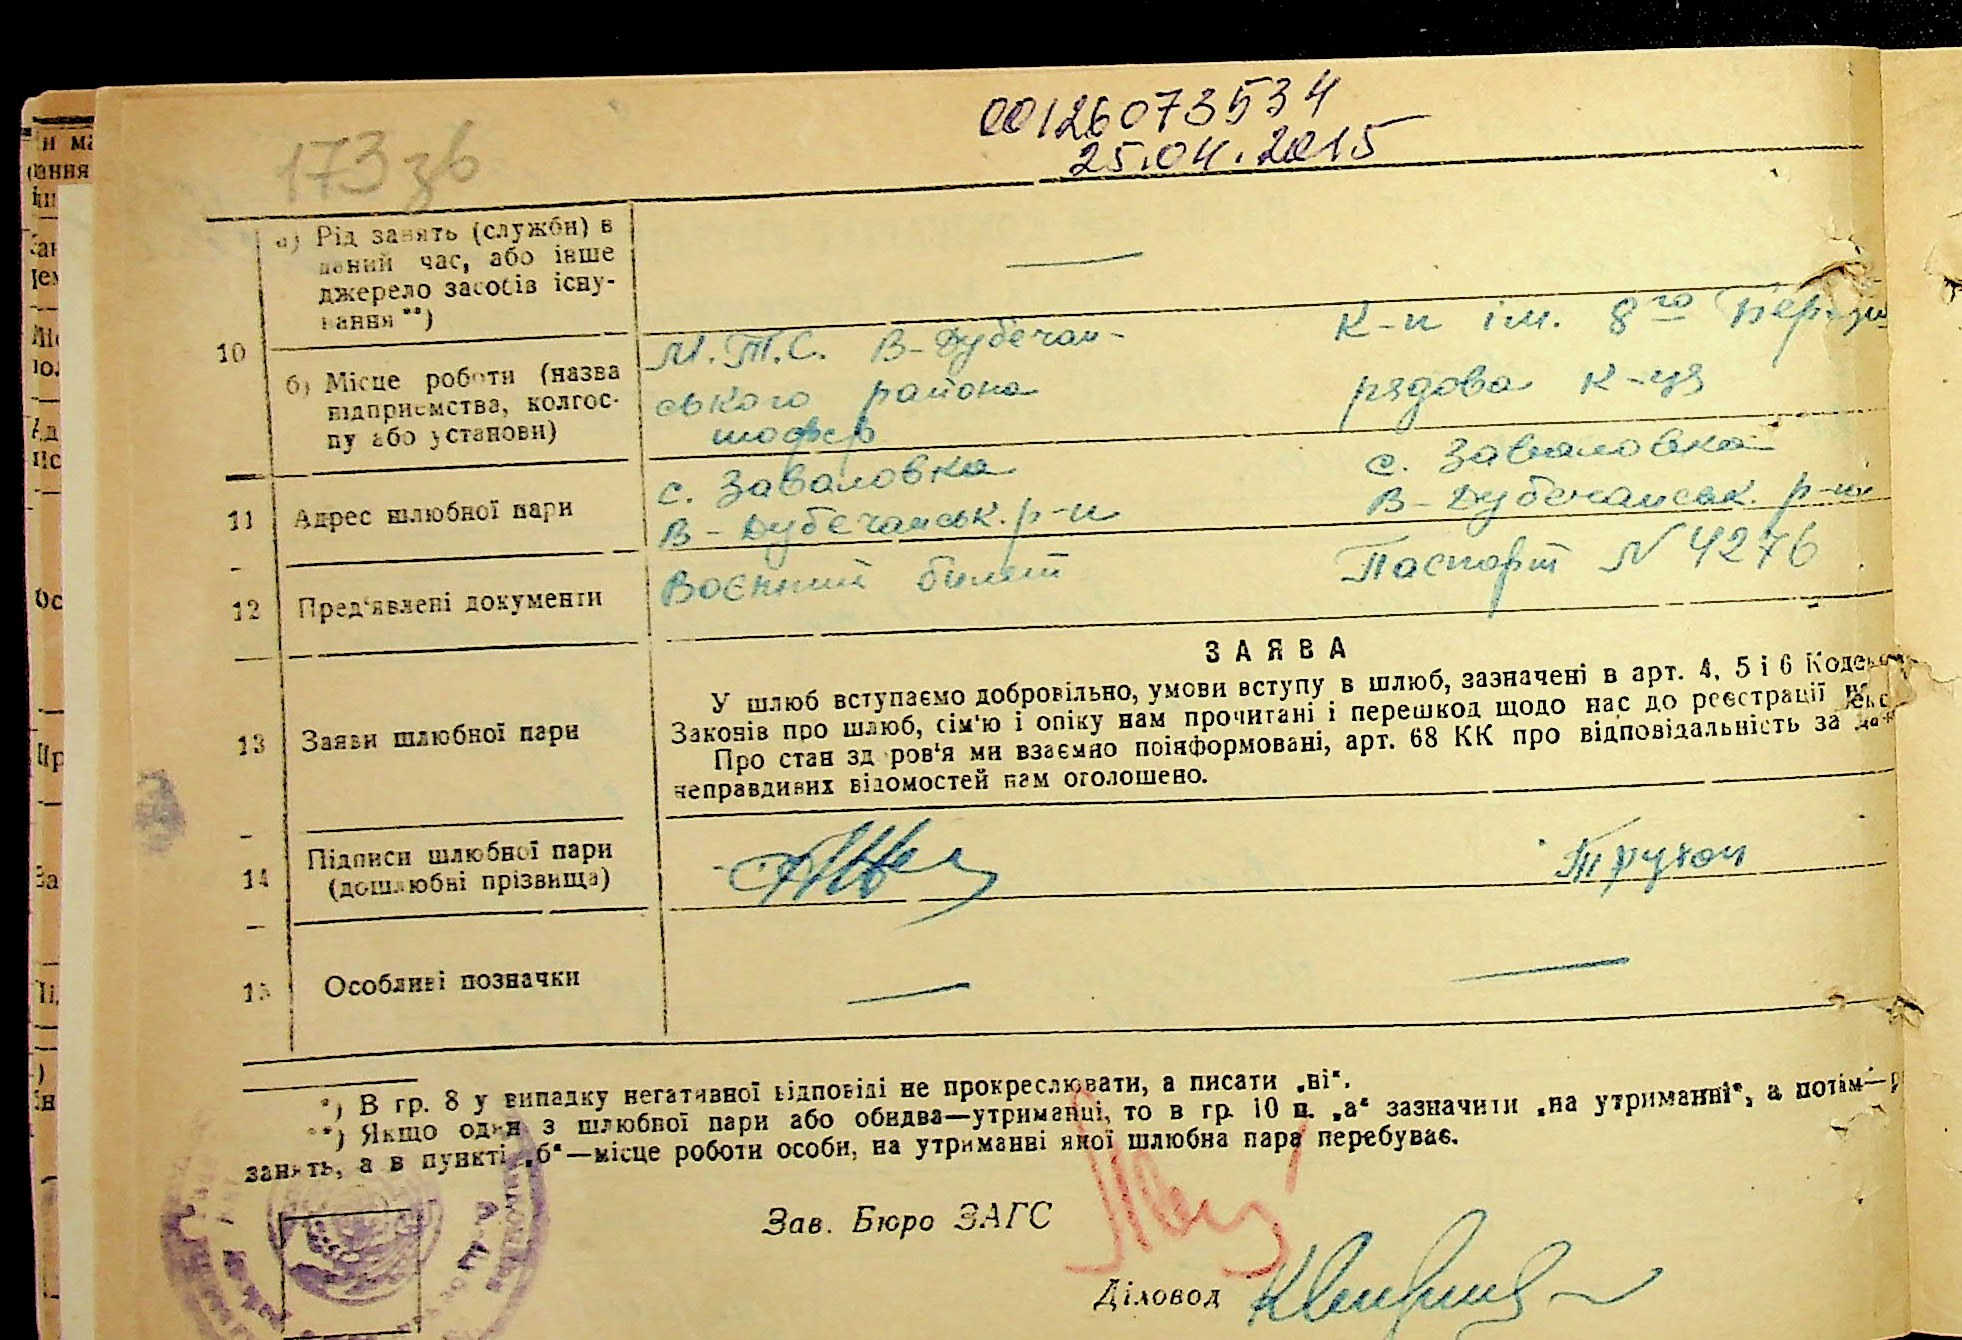 00126073534
25.04.2015
173 зв
10
а) Рід занять (служби) в
даний час, або інше
джерело засобів існу-
вання **)
—
б) Місце роботи (назва
підприємства, колгос-
пу або установи)
М.Т.С. В-Дубечан-
ського района
шофер
К-п ім. 8го Березня
рядова к-ця
11 Адрес шлюбної пари
с. Заваловка
В-Дубечанськ. р-н
с. Заваловка
В-Дубечанськ. р-н
12 Пред'явлені документи
Воєнний билет
Паспорт N 4276
13 Заяви шлюбної пари
ЗАЯВА
У шлюб вступаємо добровільно, умови вступу в шлюб, зазначені в арт. 4, 5 і 6 Кодексу
Законів про шлюб, сім'ю і опіку нам прочитані і перешкод щодо нас до реєстрації
Про стан здоров'я ми взаємно поінформовані, арт. 68 КК про відповідальність за
неправдивих відомостей нам оголошено.
14 Підписи шлюбної пари
(дошлюбні прізвища)
Трухон
15 Особливі позначки
— —
*) В гр. 8 у випадку негативної відповіді не прокреслювати, а писати „ні".
**) Якщо один з шлюбної пари або обидва—утриманці, то в гр. 10 п. „а" зазначити „на утриманні", а потім—
занять, а в пункті „б"—місце роботи особи, на утриманні якої шлюбна пара перебуває.
Зав. Бюро ЗАГС
Діловод